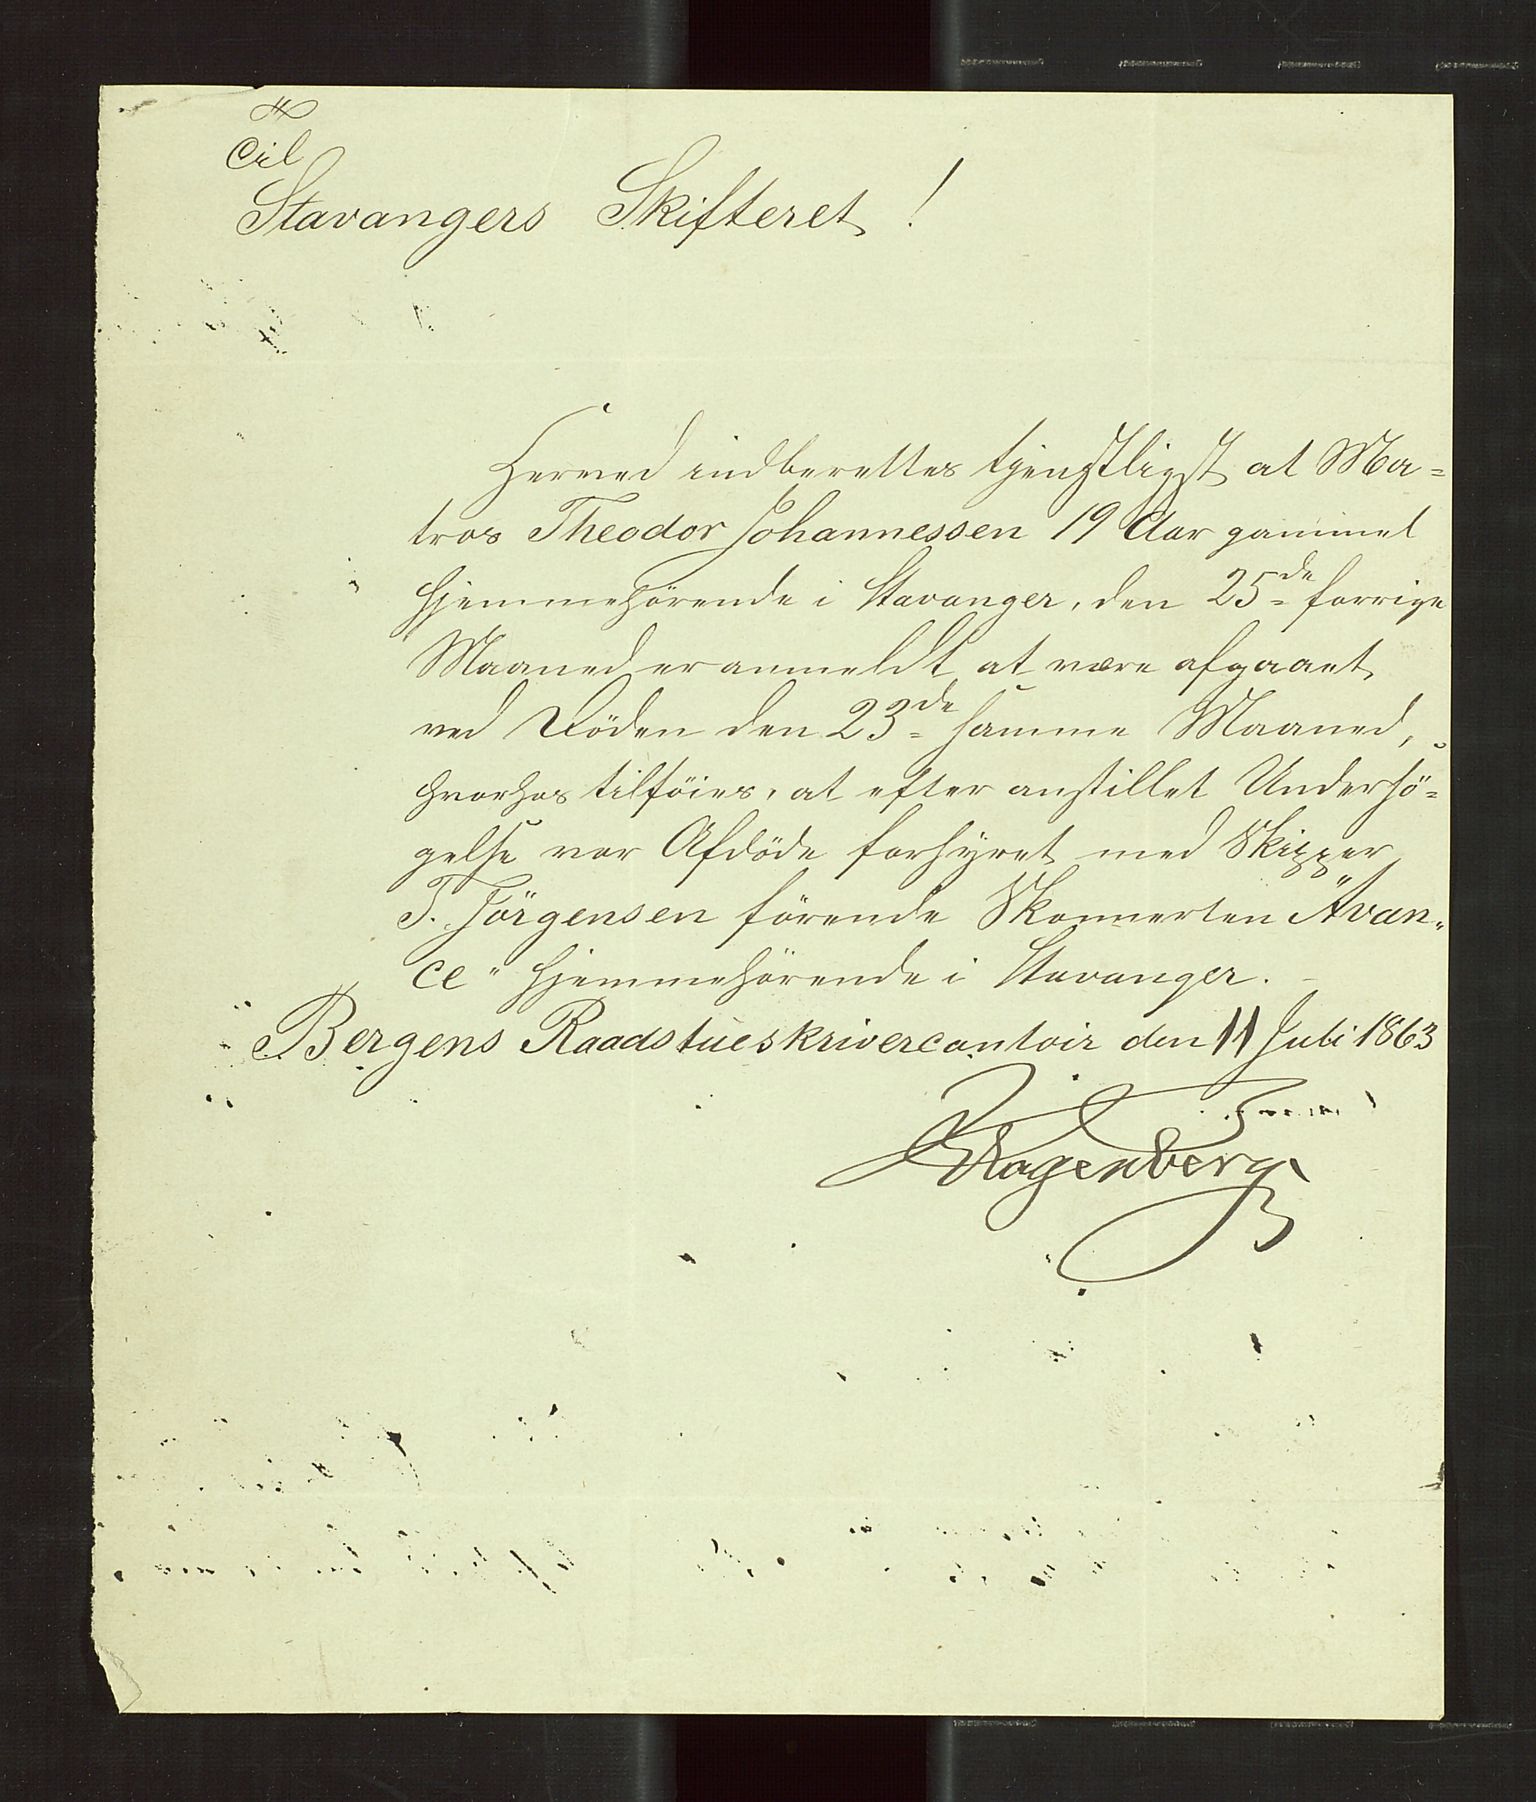 Til
Stavangers Skifteret!
Herved indberettes tjenstligst at Ma=
tros Theodor Johannessen 19 Aar gammel
hjemmehörende i Stavanger, den 25de forrige
Maaned er anmeldt at være afgaaet
ved Döden den 23de samme Maaned,
hvorhos tilföies, at efter anstillet Undersö=
gelse var Afdöde forhyret med Skipper
T. Jörgensen förende Skonnerten "Avan=
ce" hjemmehörende i Stavanger.
Bergens Raadstueskrivercontoir den 11 Juli 1863
Hagenberg